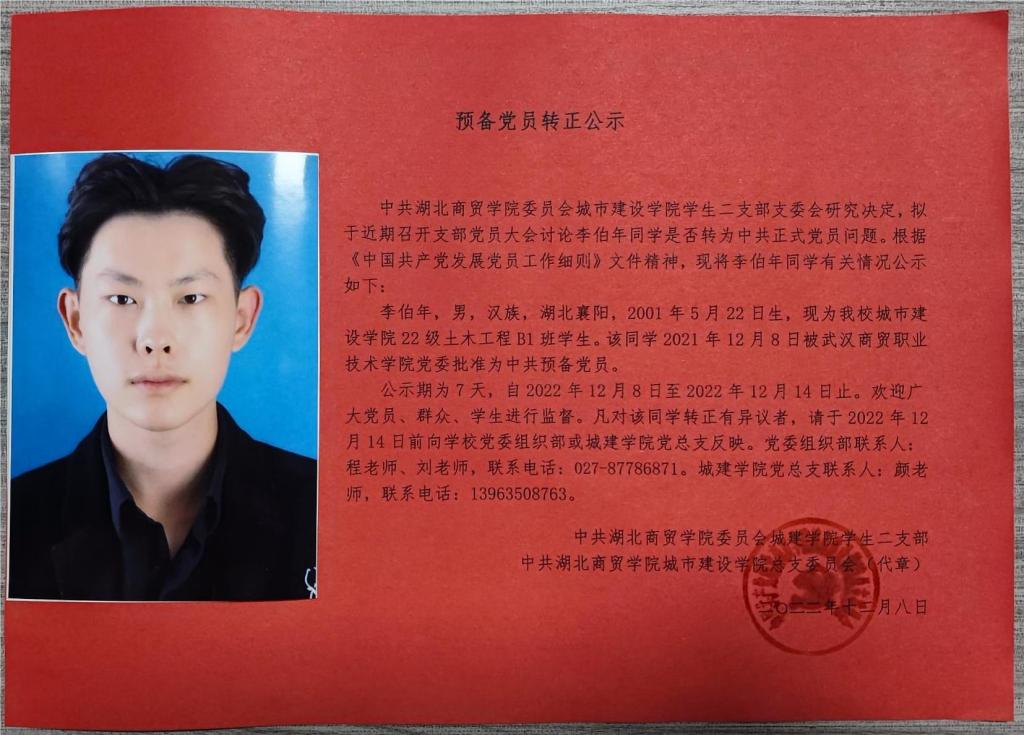 预备党员转正公示
中共湖北商贸学院委员会城市建设学院学生二支部支委会研究决定，拟
于近期召开支部党员大会讨论李伯年同学是否转为中共正式党员问题。根据
《中国共产党发展党员工作细则》文件精神，现将李伯年同学有关情况公示
如下：
李伯年，男，汉族，湖北襄阳，2001 年 5 月 22 日生，现为我校城市建
设学院 22 级土木工程 B1 班学生。该同学 2021 年 12 月 8 日被武汉商贸职业
技术学院党委批准为中共预备党员。
公示期为 7 天，自 2022 年 12 月 8 日至 2022 年 12 月 14 日止。欢迎广
大党员、群众、学生进行监督。凡对该同学转正有异议者，请于 2022 年 12
月 14 日前向学校党委组织部或城建学院党总支反映。党委组织部联系人：
程老师、刘老师，联系电话：027-87786871。城建学院党总支联系人：颜老
师，联系电话：13963508763。
中共湖北商贸学院委员会城建学院学生二支部
中共湖北商贸学院城市建设学院总支委员会（代章）
二〇二二年十二月八日